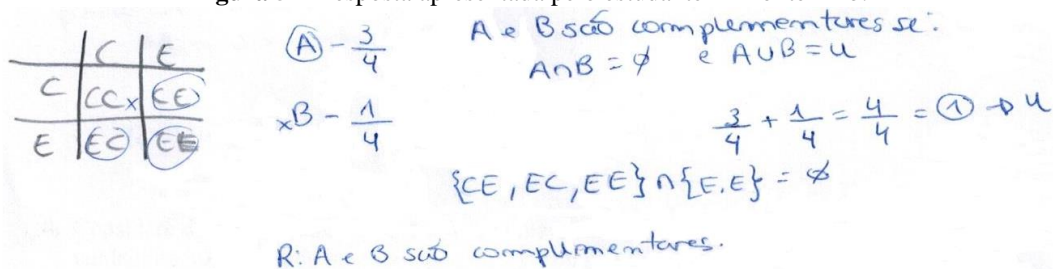 C E
C CCx CE
E EC EE
A - 3/4
xB - 1/4
A e B são complementares se:
A∩B = ∅ e A∪B = U
3/4 + 1/4 = 4/4 = 1 → U
{CE, EC, EE} ∩ {E.E} = ∅
R: A e B são complementares.